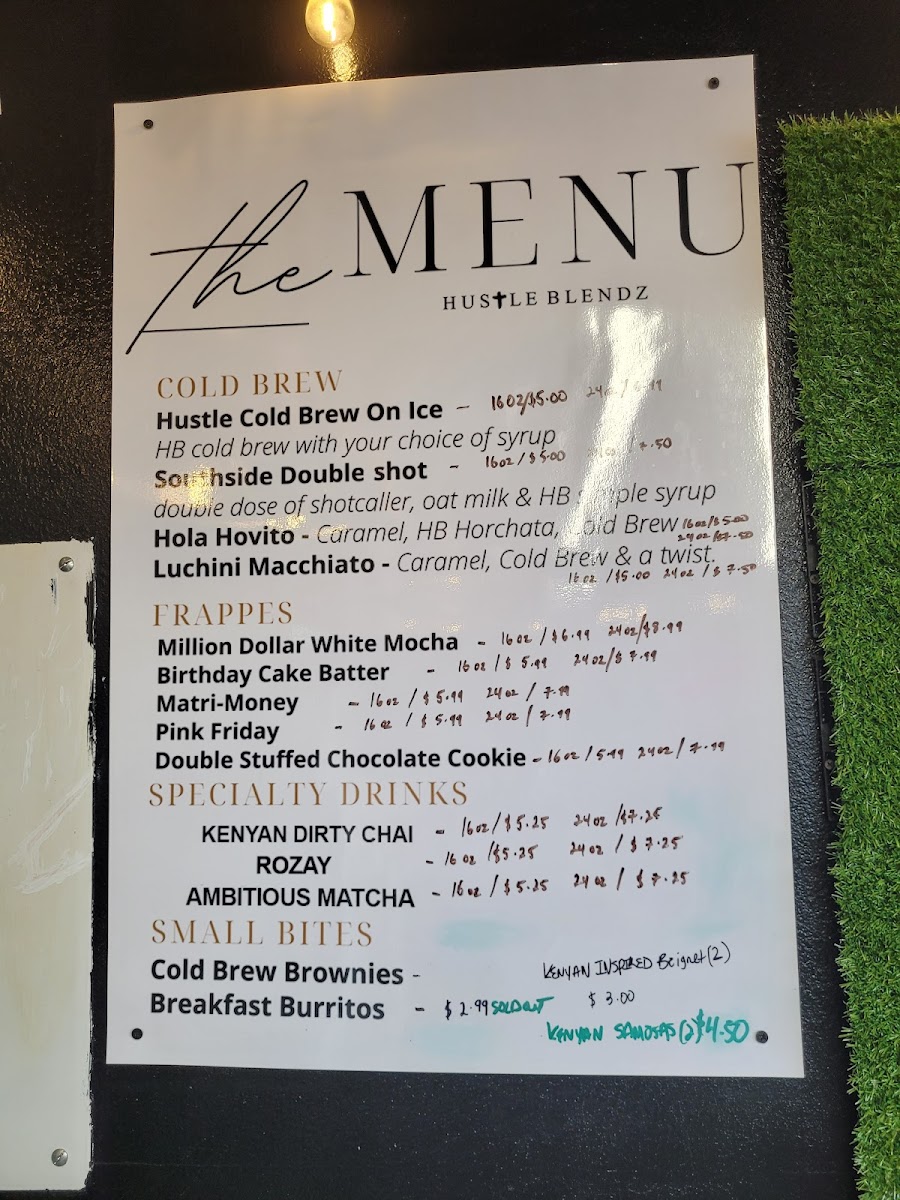 the MENU
HUS✝LE BLENDZ
COLD BREW
Hustle Cold Brew On Ice - 16oz/$5.00
HB cold brew with your choice of syrup
Southside Double shot - 16oz/$5.00 /7.50
double dose of shotcaller, oat milk & HB simple syrup
Hola Hovito - Caramel, HB Horchata, Cold Brew 16oz/$5.00
24oz/$7.50
Luchini Macchiato - Caramel, Cold Brew & a twist.
16oz/$5.00 24oz/$7.50
FRAPPES
Million Dollar White Mocha - 16oz/$6.99 24oz/$8.99
Birthday Cake Batter - 16oz/$5.99 24oz/$7.99
Matri-Money - 16oz/$5.99 24oz/7.99
Pink Friday - 16oz/$5.99 24oz/7.99
Double Stuffed Chocolate Cookie - 16oz/5.99 24oz/7.99
SPECIALTY DRINKS
KENYAN DIRTY CHAI - 16oz/$5.25 24oz/$7.25
ROZAY - 16oz/$5.25 24oz/$7.25
AMBITIOUS MATCHA - 16oz/$5.25 24oz/$7.25
SMALL BITES
Cold Brew Brownies - KENYAN INSPIRED Beignet (2)
Breakfast Burritos - $2.99 SOLD OUT $3.00
KENYAN SAMOSAS (2) $4.50